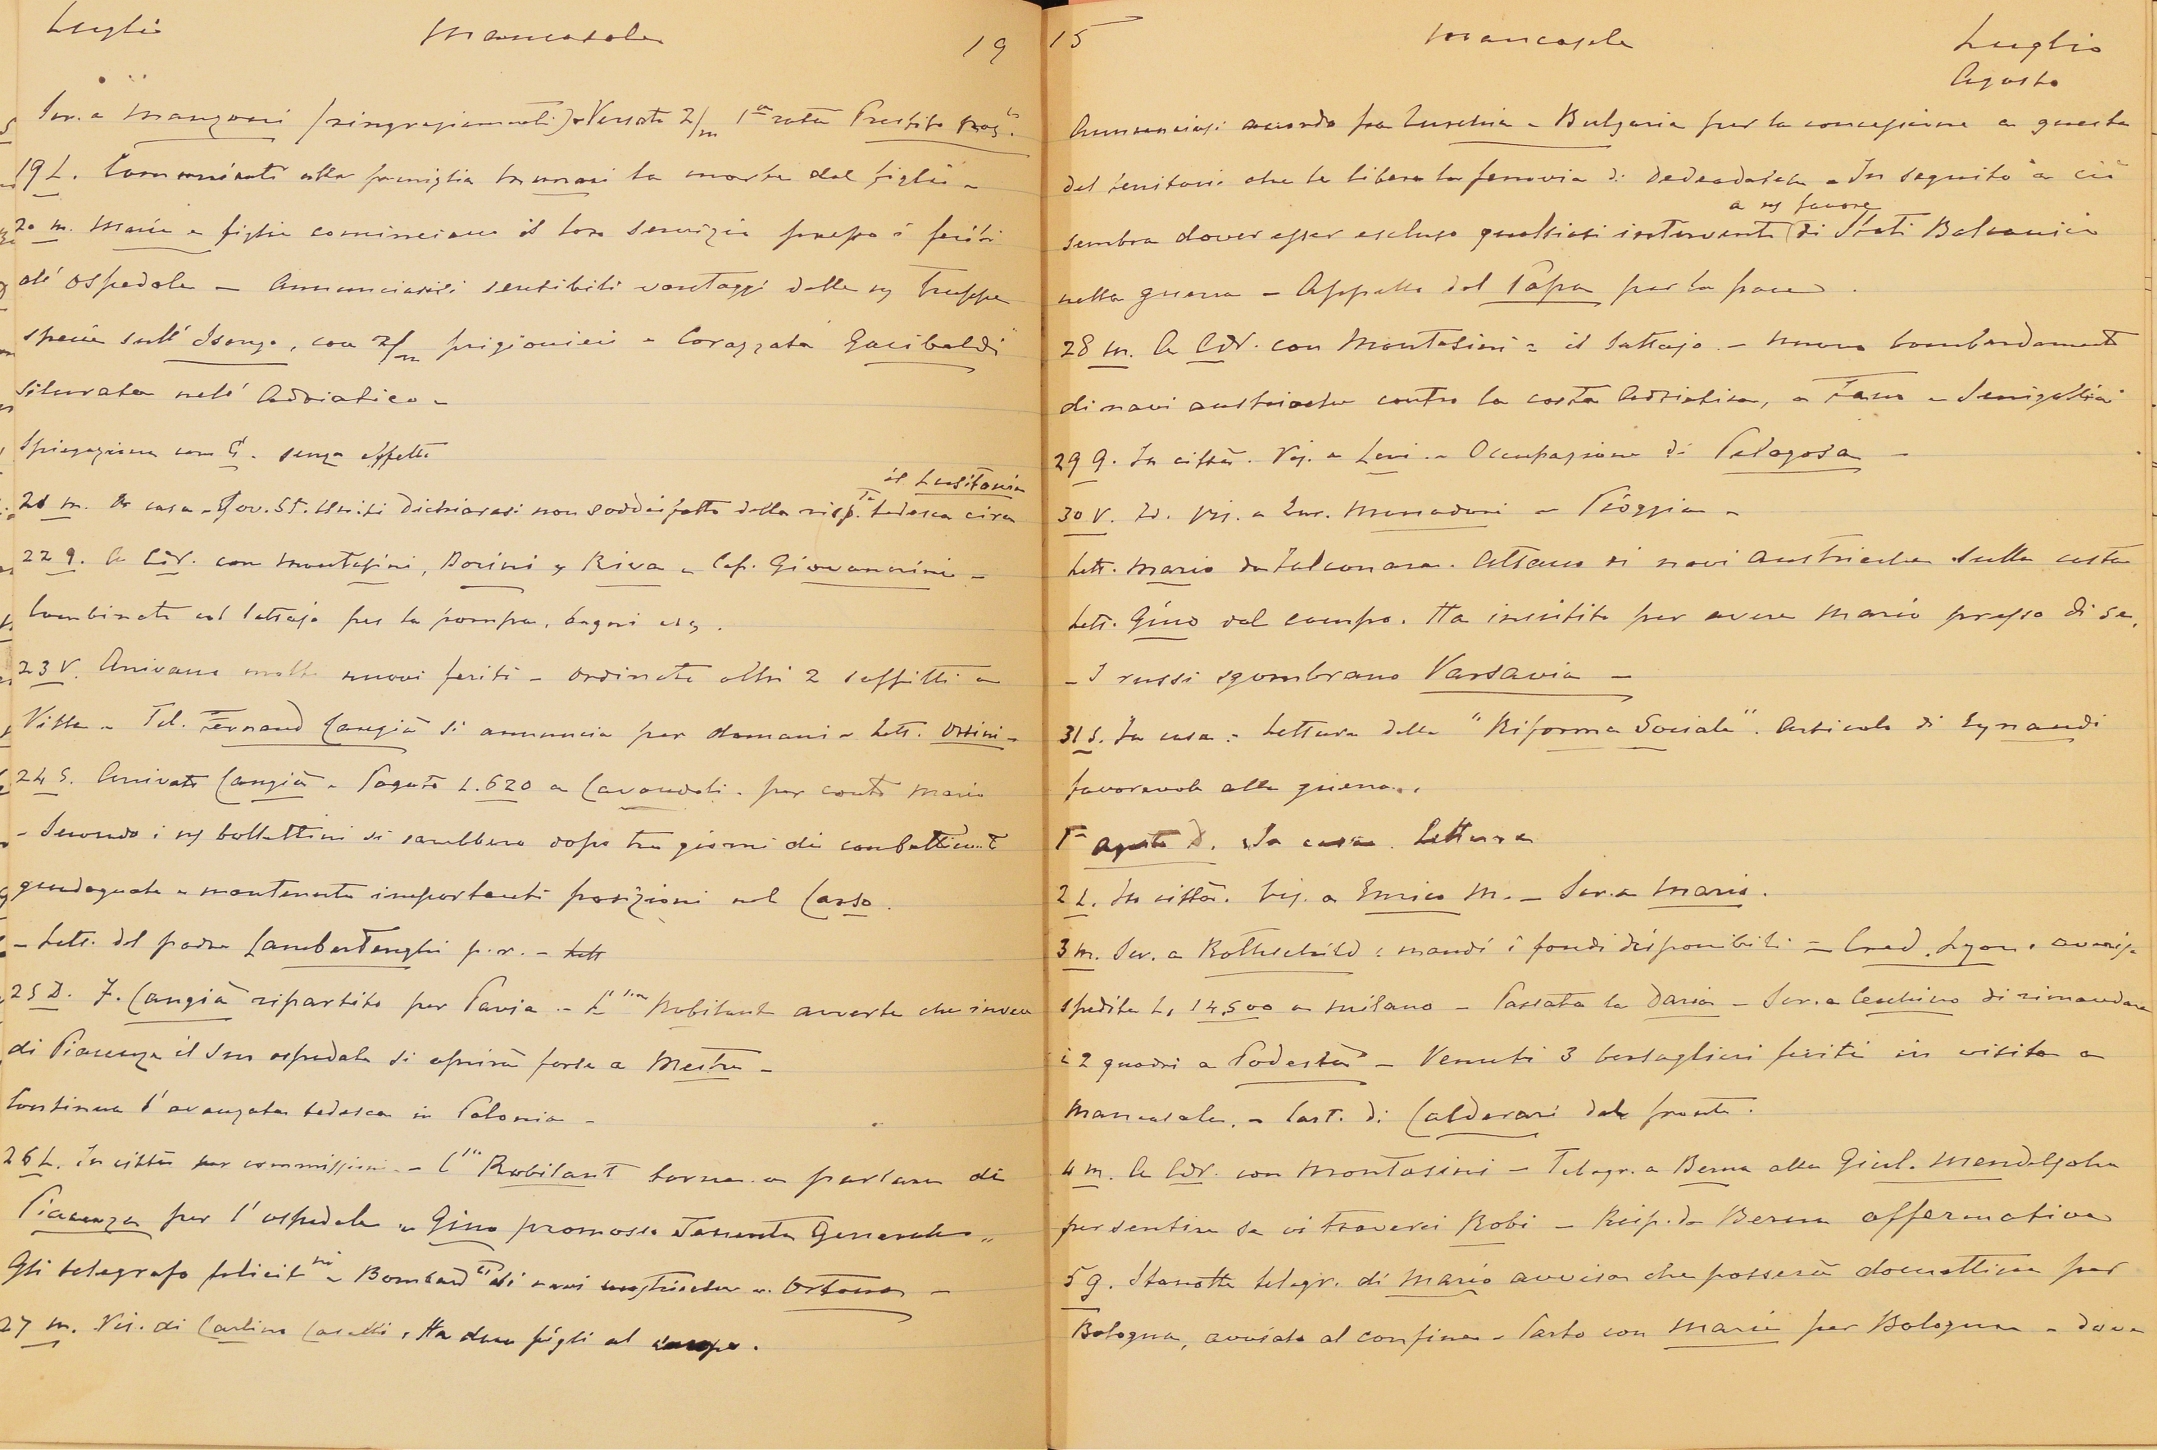 Luglio Mancasale 19
Scr. a Manzoni (ringraziamenti) Versate 2/m 1ª rata Prestito
19 L. Comunicata alla famiglia Munari la morte del figlio -
20 m. Marie e figlie cominciano il loro servizio presso i feriti
all'ospedale - Annunciansi sensibili vantaggi delle ns truppe
specie sull'Isonzo, con 2/m prigionieri - Corazzata Garibaldi
silurata nell'Adriatico -
Spiegazione con G. senza effetto
il Lusitania
21 m. In casa - Gov. St. Uniti dichiarasi non soddisfatto della risp.ta tedesca circa
22 g. A Cdr. con Montasini, Dorini e Riva - Cap. Giovannini -
Combinato col lattajo per la pompa, bagni
23 V. Arrivano molti nuovi feriti - Ordinate altri 2 soffitti a
Villa - Tel. Fernand Cangià si annuncia per domani - Lett. Orsini -
24 S. Arrivato Cangià - Pagato L. 620 a Cavandoli - per conto Mario
- Secondo i ns bollettini si sarebbero dopo tre giorni di combattimento
guadagnate e mantenute importanti posizioni nel Carso.
- Lett. del padre Lambertenghi p.r. -
25 D. F. Cangià ripartito per Pavia - Robilant avverte che invece
di Piacenza il suo ospedale si aprirà forse a Mestre -
Continua l'avanzata tedesca in Polonia -
26 L. In città per commissioni - Robilant torna a parlare di
Piacenza per l'ospedale - Gino promosso Tenente Generale
Gli telegrafo felicit.ni - Bombard.to di navi austriache a Ortona -
27 m. Vis. di Carlino Caselli, Ha due figli al campo.
15 Mancasale Luglio
Agosto
Annunciasi accordo fra Turchia e Bulgaria per la concessione a questa
del territorio che le libera la ferrovia di Dedeagatch - In seguito a ciò
a ns favore
sembra dover esser escluso qualsiasi intervento di Stati Balcanici
nella guerra - Appello del Papa per la pace.
28 m. A Cdr. con Montasini e il lattajo - nuovo bombardamento
di navi austriache contro la costa Adriatica, a Fano e Senigallia
29 g. In città. Vis. a Levi - Occupazione di Pelagosa -
30 V. Id. Vis. a Enr. Menadori - Pioggia -
Lett. Mario da Falconara. Attacco di navi austriache sulla costa
Lett. Gino dal campo. Ha insistito per avere Mario presso di se.
- I russi sgombrano Varsavia -
31 S. In casa - Lettura della "Riforma Sociale". Articolo di Eynaudi
favorevole alla guerra.
1º agosto D. In casa. Letture
2 L. In città. Vis. a Enrico M. - Scr. a Mario.
3 m. Scr. a Rothschild: mandi i fondi disponibili - Cred. Lyon. avvisa
spedite L. 14,500 a Milano - Passata la Daria - Scr. a Ceschino di rimandare
i 2 quadri a Podestà - Venuti 3 bersaglieri feriti in visita a
Mancasale. - Cart. di Calderari dal fronte.
4 m. A Cdr. con Montasini - Telegr. a Berna alla Giul. Mendelsohn
per sentire se vi troverei Robi - Risp. da Berna affermativa
5 g. Stanotte telegr. di Mario avvisa che passerà domattina per
Bologna, avviato al confine - Parto con Marie per Bologna - dove